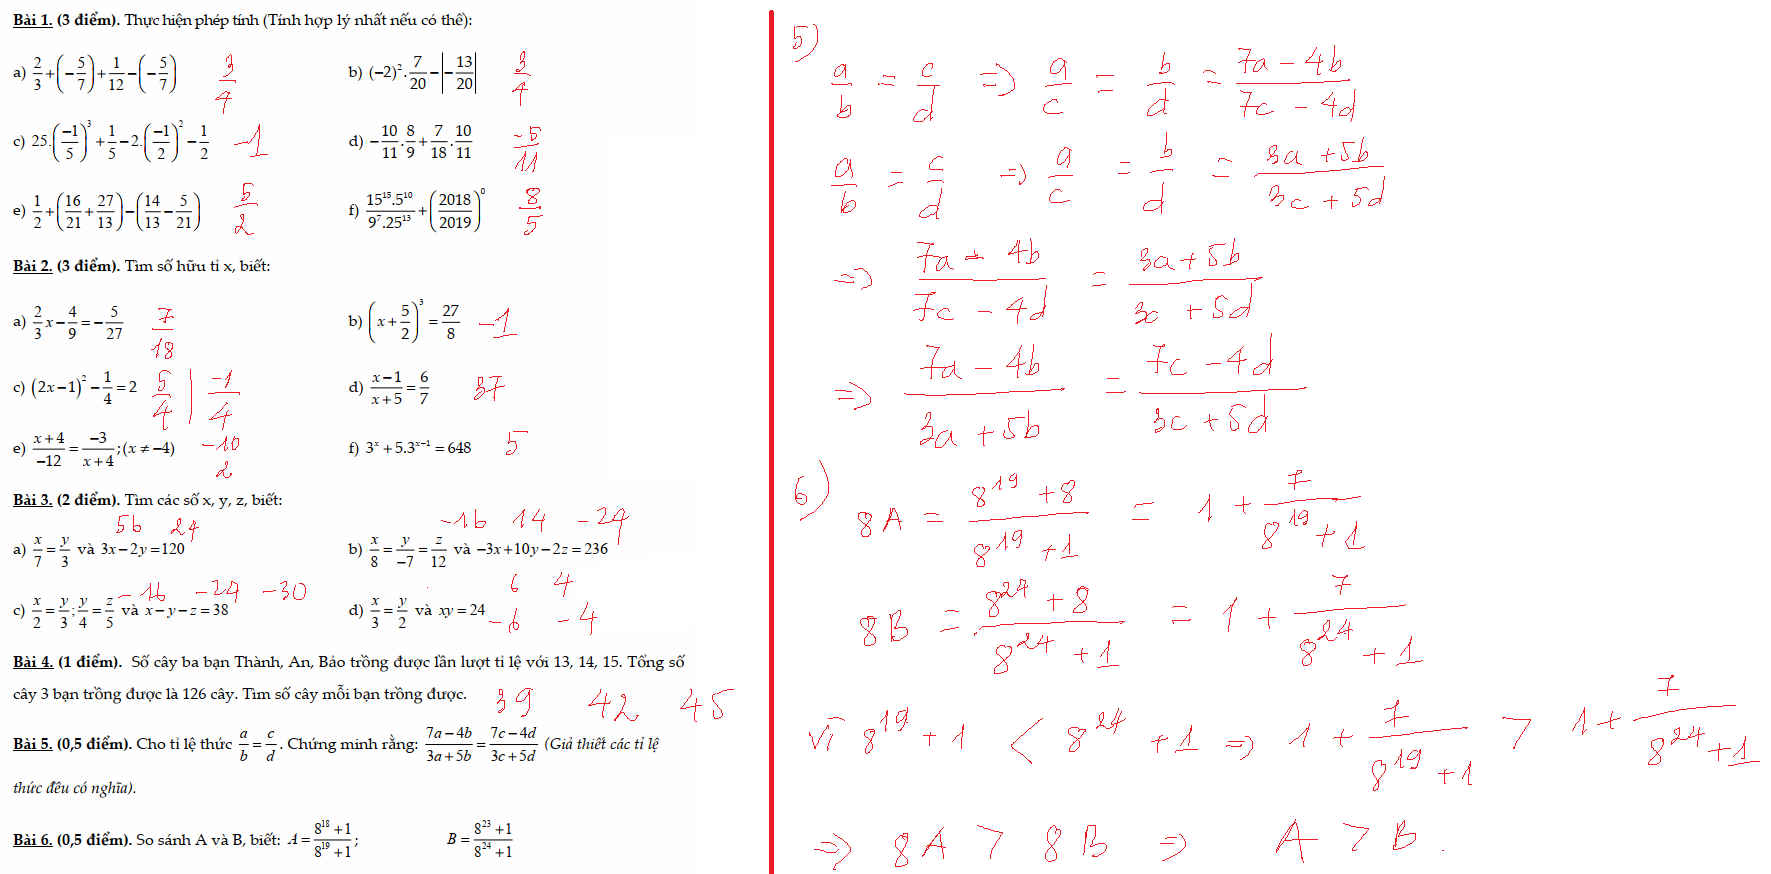 Bài 1. (3 điểm). Thực hiện phép tính (Tính hợp lý nhất nếu có thể):
a) 2/3 + (−5/7) + 1/12 − (−5/7) 3/4
b) (−2)². 7/20 − |−13/20| 3/4
c) 25.(−1/5)³ + 1/5 − 2.(−1/2)² − 1/2 −1
d) −10/11 . 8/9 + 7/18 . 10/11 −5/11
e) 1/2 + (16/21 + 27/13) − (14/13 − 5/21) 5/2
f) 15¹⁵.5¹⁰/9⁷.25¹³ + (2018/2019)⁰ 8/5
Bài 2. (3 điểm). Tìm số hữu tỉ x, biết:
a) 2/3 x − 4/9 = −5/27 7/18
b) (x + 5/2)³ = 27/8 −1
c) (2x−1)² − 1/4 = 2 5/4 | −1/4
d) x−1/x+5 = 6/7 37
e) x+4/−12 = −3/x+4 ; (x ≠ −4) −10 2
f) 3ˣ + 5.3ˣ⁻¹ = 648 5
Bài 3. (2 điểm). Tìm các số x, y, z, biết:
56 24
a) x/7 = y/3 và 3x−2y=120
−16 14 −24
b) x/8 = y/−7 = z/12 và −3x+10y−2z = 236
−16 −24 −30
c) x/2 = y/3 ; y/4 = z/5 và x−y−z = 38
6 4
d) x/3 = y/2 và xy = 24
−6 −4
Bài 4. (1 điểm). Số cây ba bạn Thành, An, Bảo trồng được lần lượt tỉ lệ với 13, 14, 15. Tổng số
cây 3 bạn trồng được là 126 cây. Tìm số cây mỗi bạn trồng được. 39 42 45
Bài 5. (0,5 điểm). Cho tỉ lệ thức a/b = c/d. Chứng minh rằng: 7a−4b/3a+5b = 7c−4d/3c+5d (Giả thiết các tỉ lệ
thức đều có nghĩa).
Bài 6. (0,5 điểm). So sánh A và B, biết: A = 8¹⁸+1/8¹⁹+1 ; B = 8²³+1/8²⁴+1
5)
a/b = c/d => a/c = b/d = 7a − 4b/7c − 4d
a/b = c/d => a/c = b/d = 3a + 5b/3c + 5d
=> 7a − 4b/7c − 4d = 3a + 5b/3c + 5d
=> 7a − 4b/3a + 5b = 7c − 4d/3c + 5d
6)
8A = 8¹⁹ + 8/8¹⁹ + 1 = 1 + 7/8¹⁹ + 1
8B = 8²⁴ + 8/8²⁴ + 1 = 1 + 7/8²⁴ + 1
Vì 8¹⁹ + 1 < 8²⁴ + 1 => 1 + 7/8¹⁹ + 1 > 1 + 7/8²⁴ + 1
=> 8A > 8B => A > B.